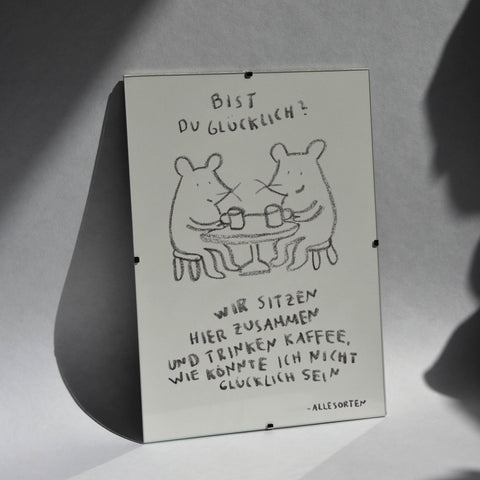 BIST
DU GLÜCKLICH?
WIR SITZEN
HIER ZUSAMMEN
UND TRINKEN KAFFEE,
WIE KÖNNTE ICH NICHT
GLÜCKLICH SEIN
-ALLESORTEN